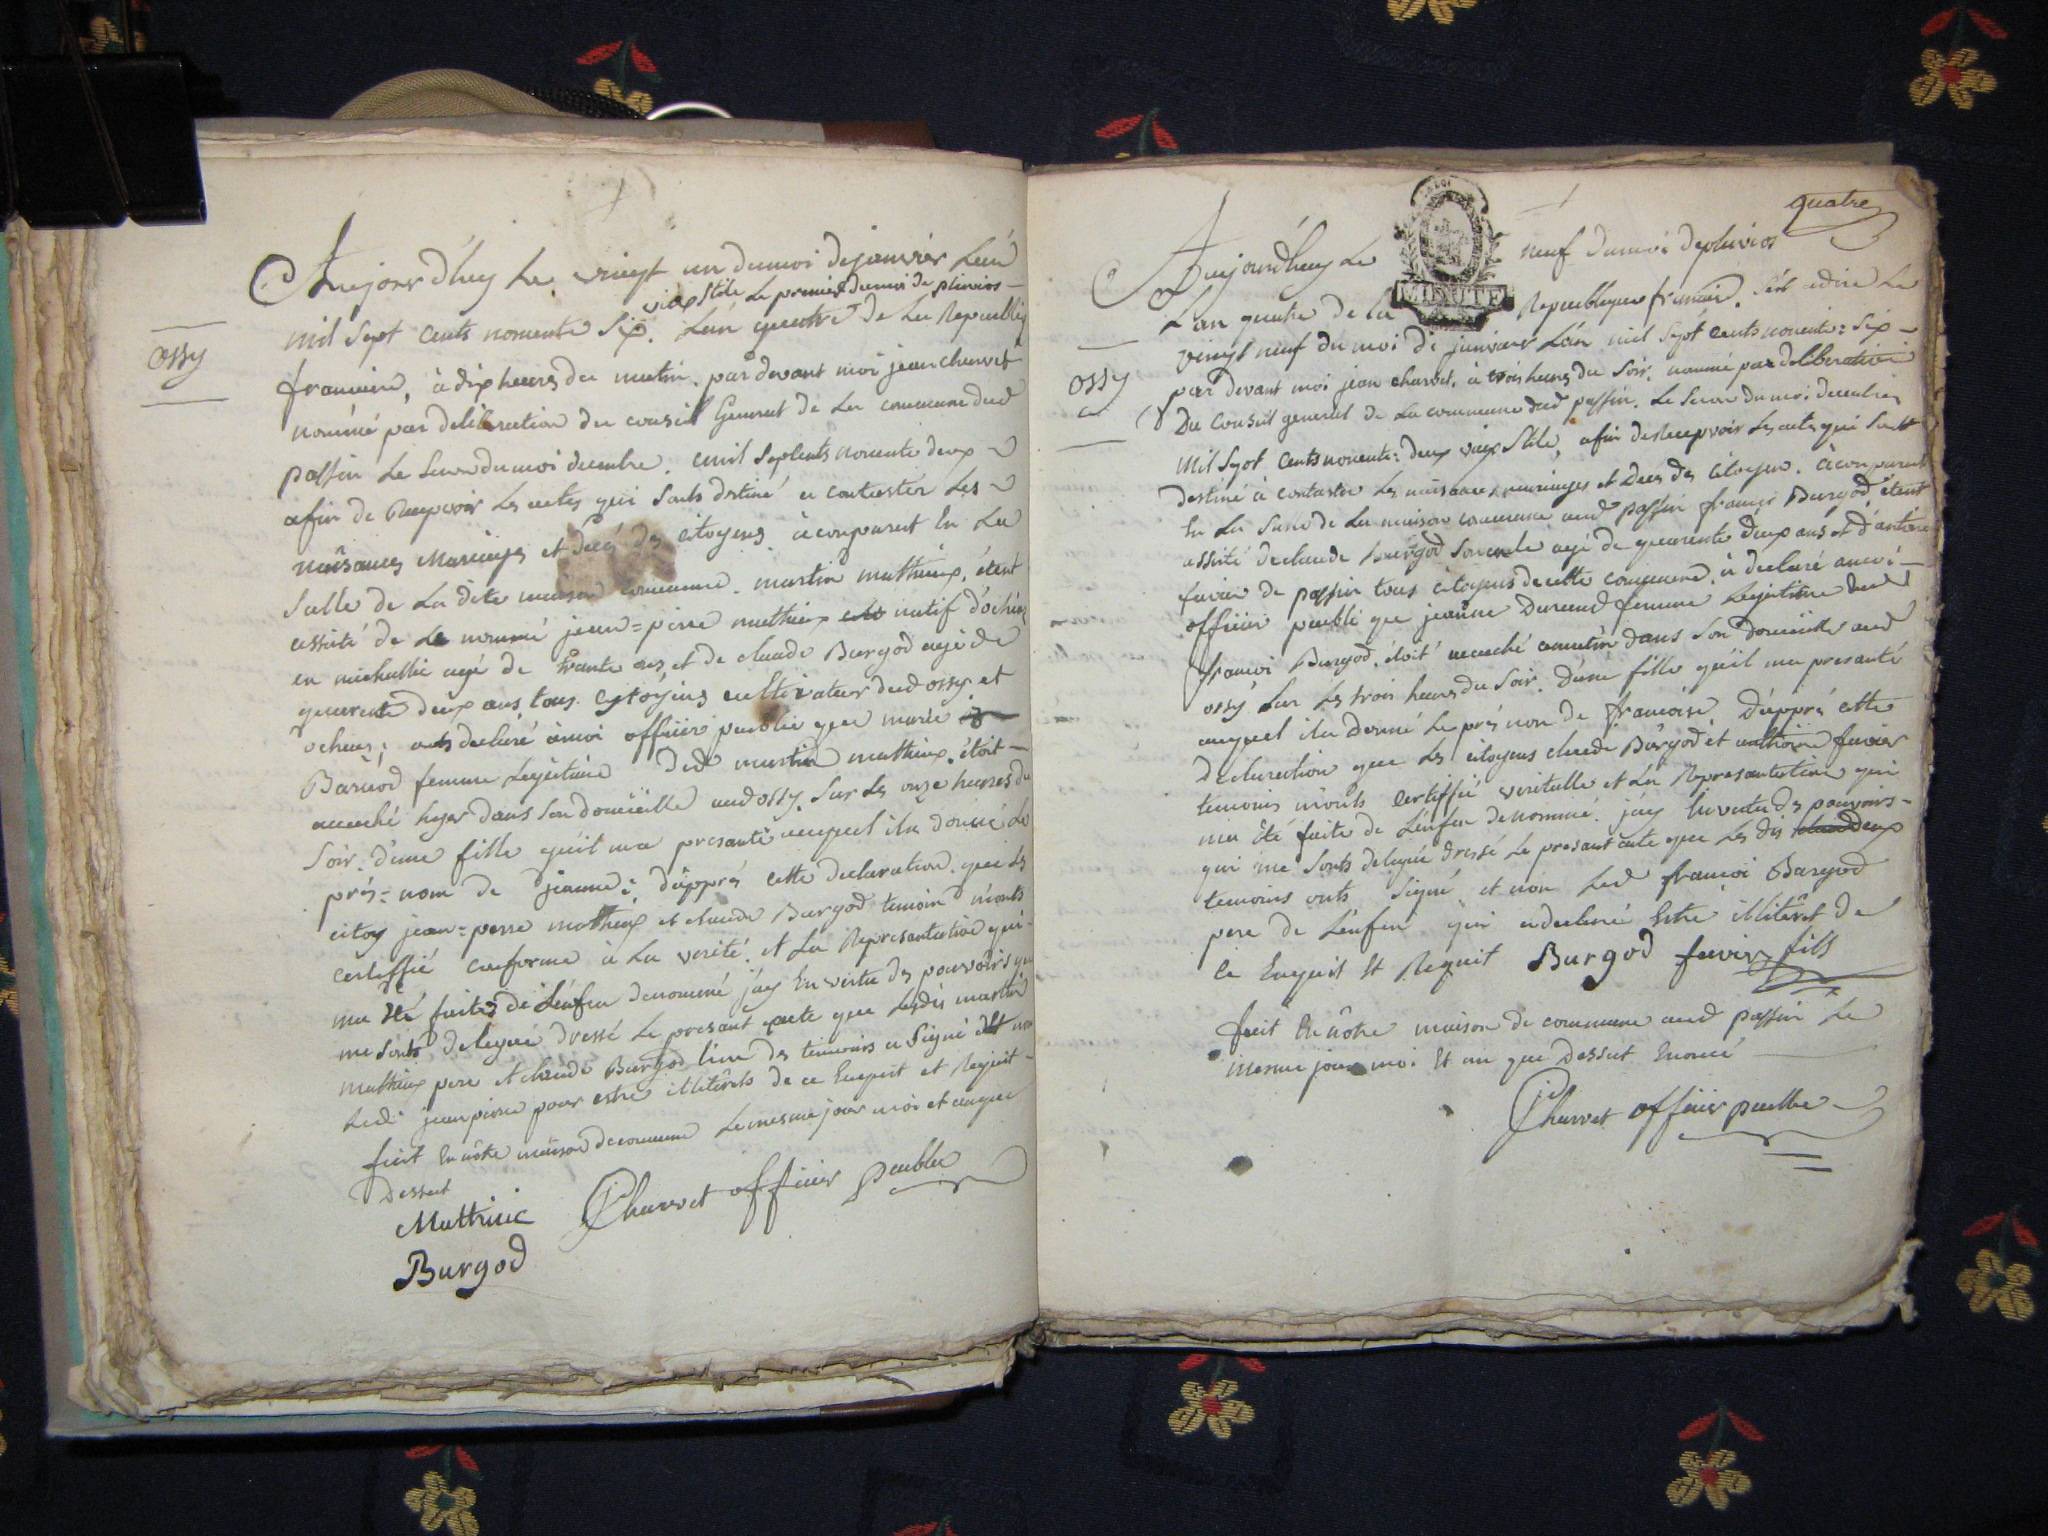 ossy
Aujourd'huy Le vingt un dumoi dejanvier Lan
viex Stile Le premier dumoi de pluvios
mil sept cents nonente Six. L'an quatre de La Republiq
francaise, à dix heures du matin. par devant moi jean charvet
nommé par deliberation du conseil General de La commune dud
passin Le Second du moi decembre. mil septcents nonente deux
afin de Recepvoir Les actes qui sonts dstiné a contaster Les
naisances Mariages et decés des citoyens. à conparut En La
Salle de La dite maison commune. martin mathieux. étent
assité de Le nommé jean=pierre mathieux natif d'ochias
en michallie agé de trante ans et de claude Burgod agé de
quarente deux ans tous citoyens cultivateur dud ossy et
ochias; at declaré àmoi officier public que marie
Barnod femme Legitime dud martin mathieux. étoit
acouché hyer dans son domicille aud ossy. Sur Les onze heures du
Soir. d'une fille qu'il ma presanté auquel ila donné Le
prés=nom de jeanne: d'apprés cette declaration que Les
citoy jean=pierre mathieux et claude Burgod temoins m'onts
certiffié conforme à La verité. et La Represantation qui
ma été faites de L'enfan denommé j'ay En vertu des pouvoirs qui
me sonts delegué dressé Le presant acte que Lesdis martin
mathieux pere et claude Burgod l'un des temoins a Signé et non
Ledi jeanpierre pour estre illitérés de ce Enquis et Requit
fait En nôtre maison de commune Le mesme jour moi et an que
Dessut
Mathieic Charvet officier Public
Burgod
quatre
MINUTE
ossy
Aujourdhuy Le neuf du moi depluvios
L'an quatre de La Republique francaise. s'ét adire Le
vingt neuf du moi de janvier L'an mil sept cents nonente=Six
par devant moi jean charvet. à trois heures du Soir. nommé par deliberation
Du Conseil general de La commune dud passin. Le Second du moi decembre
Mil Sept Cents nonente: deux viex Stile, afin desRecepvoir Les actes qui Sont
destiné à contaster Les naisances, mariages et Deces des Citoyens. à conparut
En La Sale de La maison commune aud passin françoi Burgod, étent
assité declaude Burgod Son oncle agé de quarente deux ans et d'antoine
favier de passin tous citoyens decette commune. à declaré amoi
officier public que jeanne Durand femme Legitime dud
francoi Burgod. étoit acouché cematin dans Son domicille aud
ossy Sur Les trois heures du Soir. d'une fille qu'il ma presanté
auquel ila Donné Le prés nom de francoise. D'apprés cette
declaration que Les citoyens claude Burgod et anthoine favier
temoins m'onts Certiffié veritable et La Represantation qui
ma été faite de L'enfan denommé. j'ay En vertu des pouvoirs
qui me sonts delegué dressé Le presant acte que Les dis deux
temoins onts Signé et non Led francoi Bargod
pere de L'enfan qui adeclaré Estre illitéret de
ce Enquit Et Requit Burgod favier fills
fait En nôtre maison de commune aud passin Le
mesme jour moi Et an que Dessut Enoncé
Charvet officier public